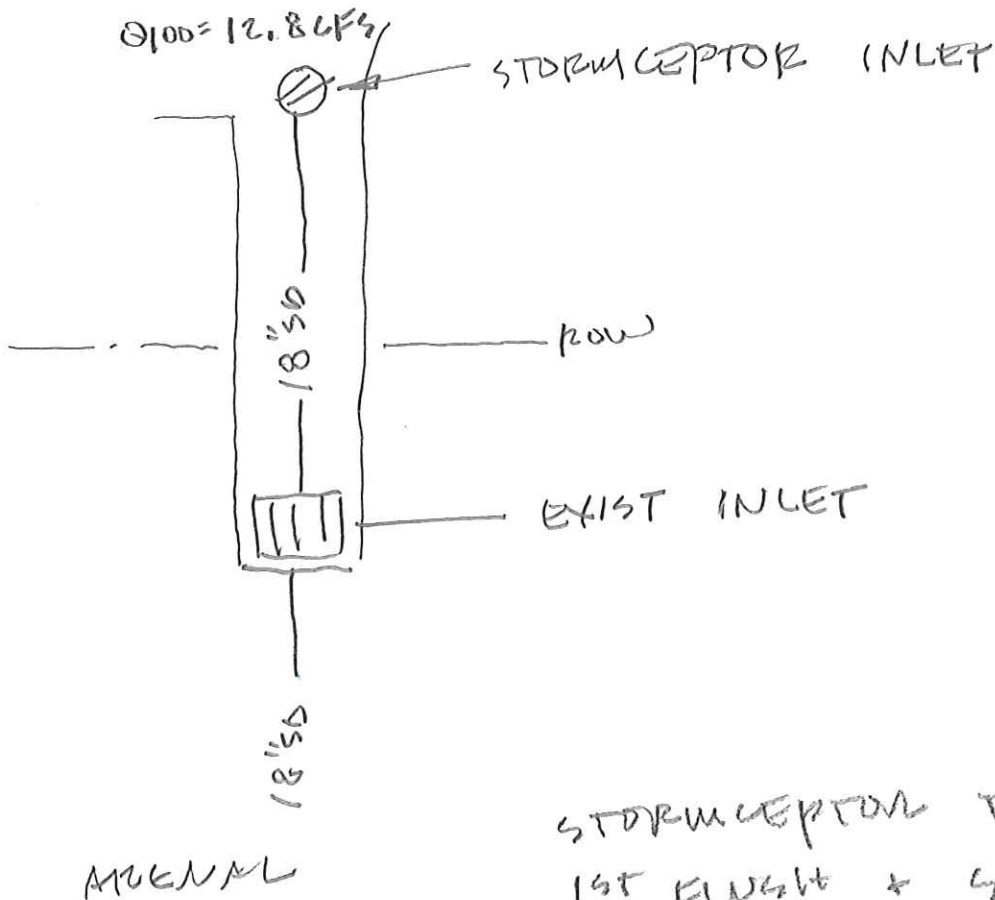 Q100= 12.8 CFS
STORMCEPTOR INLET
18"SD
ROW
EXIST INLET
18"SD
STORMCEPTOR T
ARENAL
1ST FLUSH + S